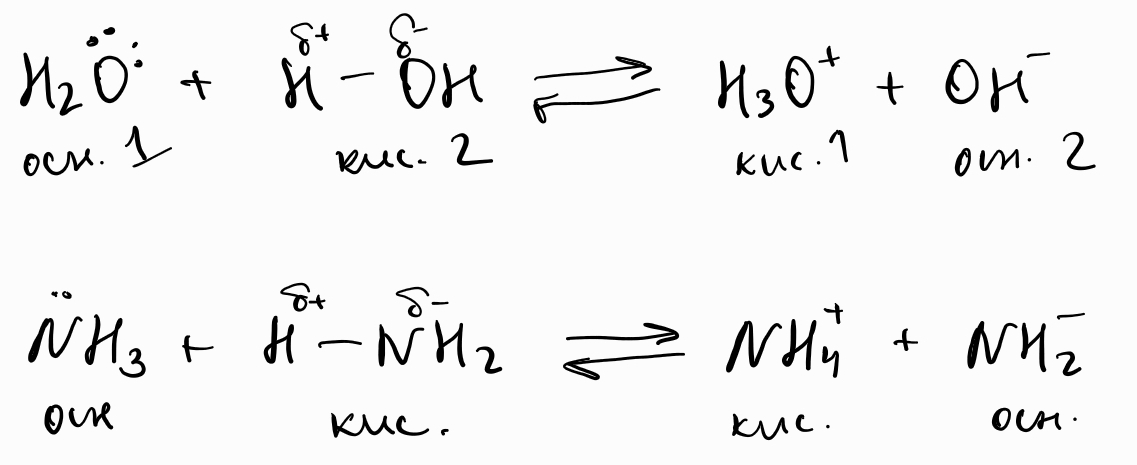 δ+ δ-
H₂O + H – OH ⇌ H₃O⁺ + OH⁻
осн. 1 кис. 2 кис. 1 осн. 2
δ+ δ-
NH₃ + H – NH₂ ⇌ NH₄⁺ + NH₂⁻
осн кис. кис. осн.